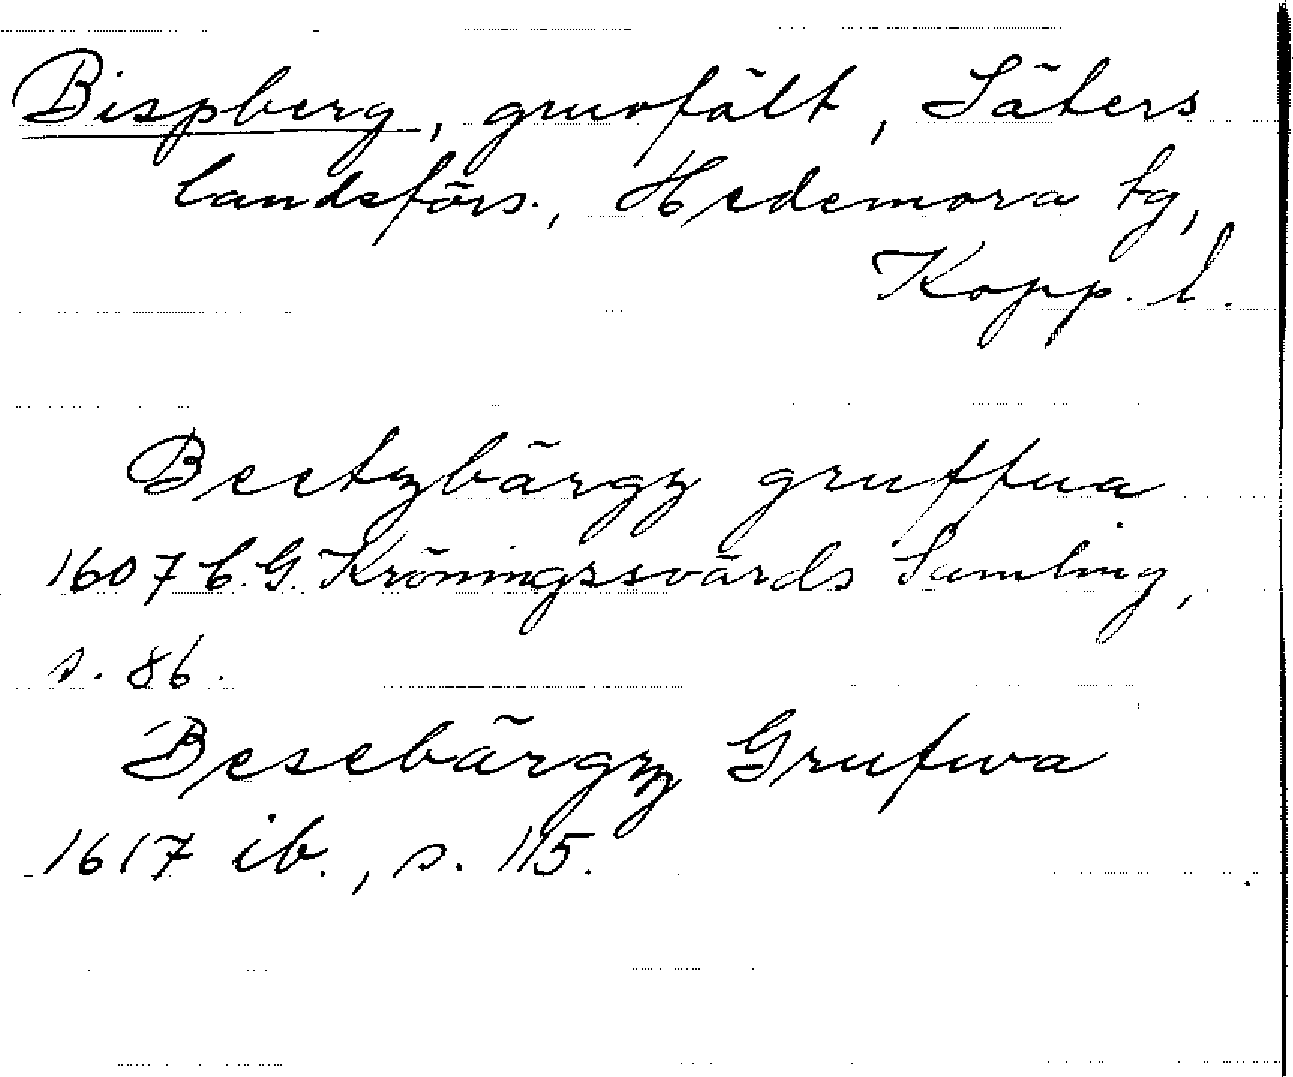 Bispberg, gruvfält, Säters
landsförs., Hedemora tg,
Kopp. l.
Beetzbärgz gruffua
1607 C.G. Kröningssvärds Samling,
s. 86.
Besebärgzz Grufwa
1617 ib., s. 115.